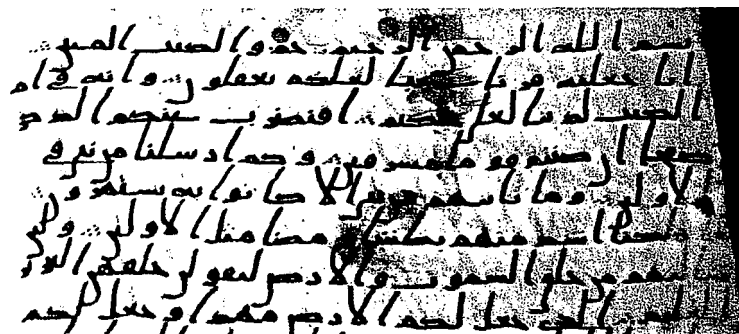 بسم الله الرحمن الرحيم حم والكتب المبين
انا جعلنه قرنا عربيا لعلكم تعقلون وانه في ام
الكتب لدينا لعلي حكيم افنضرب عنكم الذكر
صفحا ان كنتم قوما مسرفين وكم ارسلنا من نبي في
الاولين وما ياتيهم من نبي الا كانوا به يستهزون
فاهلكنا اشد منهم بطشا ومضا مثل الاولين ولين
سالتهم من خلق السموت والارض ليقولن خلقهن العز
يز العليم الذي جعل لكم الارض مهدا وجعل لكم